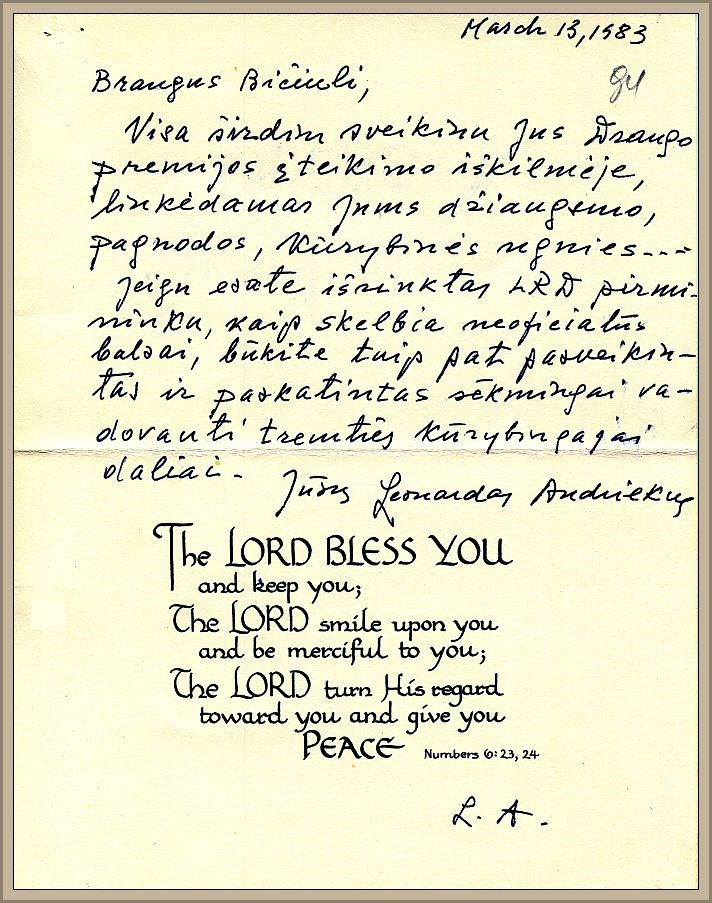 March 13, 1983
94
Brangus Bičiuli,
Visa širdim sveikinu Jus Draugo
premijos įteikimo iškilmėje,
linkėdamas Jums džiaugsmo,
pagarbos, kūrybinės ugnies...-
Jeigu esate išrinktas LRD pirmi-
ninku, kaip skelbia neoficialūs
balsai, būkite taip pat pasveikin-
tas ir paskatintas sėkmingai va-
dovauti tremties kūrybingajai
daliai.
Jūsų Leonardas Andriekus
The LORD BLESS YOU
and keep you;
The LORD smile upon you
and be merciful to you;
The LORD turn His regard
toward you and give you
PEACE Numbers 6:23, 24
L. A.